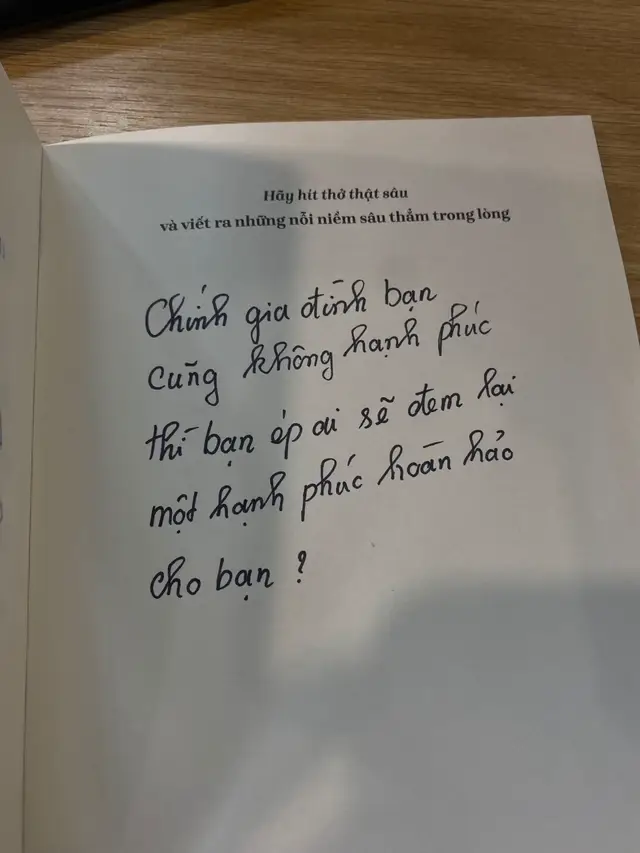 Hãy hít thở thật sâu
và viết ra những nỗi niềm sâu thẳm trong lòng
Chính gia đình bạn
cũng không hạnh phúc
thì bạn ép ai sẽ đem lại
một hạnh phúc hoàn hảo
cho bạn ?